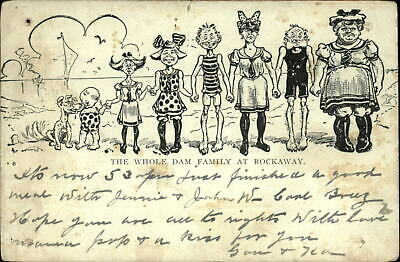 THE WHOLE DAM FAMILY AT ROCKAWAY.
Its now 530 pm just finished a good
meal with Jennie & John W cool Breez
Hope you are all to rights With love
mama pop & a kiss for you
Son &